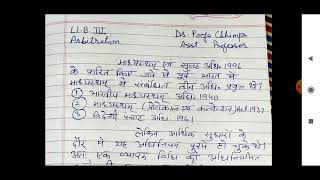 LL.B. III
Arbitration
Dr. Pooja Chhimpa
Asst. Professor
माध्यस्थम् एवं सुलह अधि. 1996
के पारित किए जाने से पूर्व भारत में
माध्यस्थम् से संबंधित तीन अधि. प्रवृत्त थे।
① भारतीय माध्यस्थम् अधि. 1940
② माध्यस्थम् (प्रोटोकाल एवं कन्वेंशन) Act 1937
③ विदेशी पंचाट अधि. 1961
लेकिन आर्थिक सुधारों के
दौर में यह अधिनियम पुराने हो चुके थे।
अतः एक व्यापक विधि को अधिनियमित